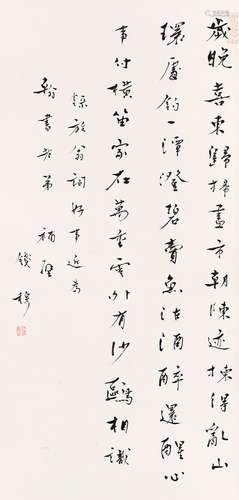 歲晚喜東歸掃盡市朝陳迹揀得亂山
環處釣一潭澄碧賣魚沽酒醉還醒心
事付橫笛家在萬重雲外有沙鷗相識
錄放翁詞好事近為
翰書老弟補壁
錢穆